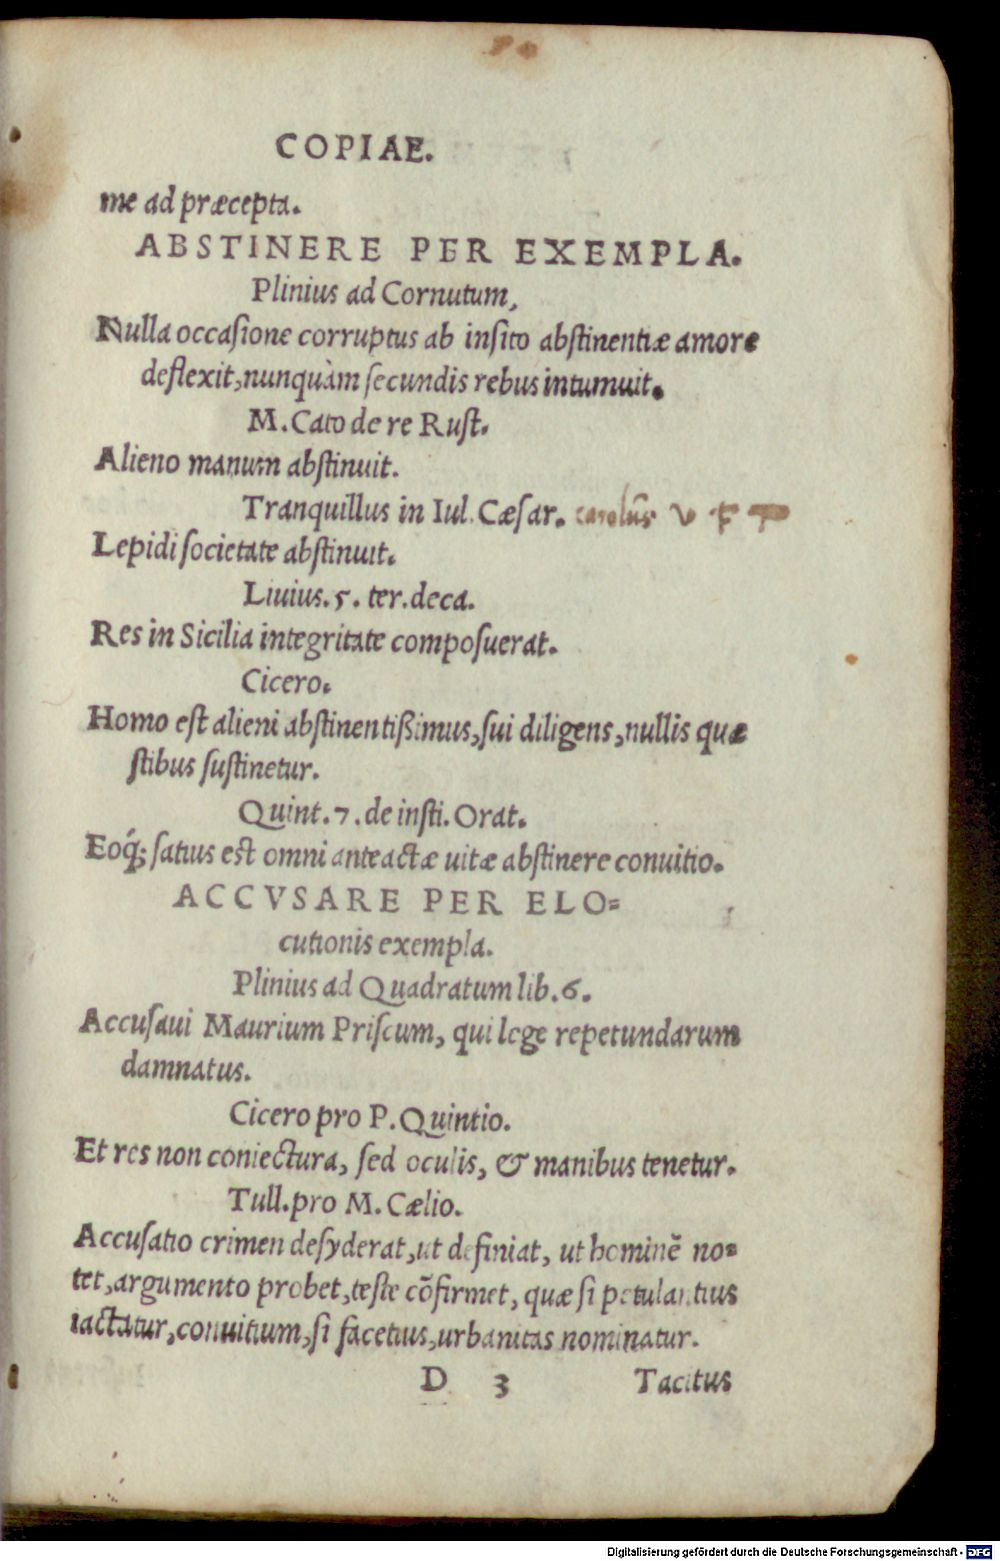 COPIAE.
me ad præcepta.
ABSTINERE PER EXEMPLA.
Plinius ad Cornutum,
Nulla occaſione corruptus ab inſito abſtinentiæ amore
deflexit, nunquàm ſecundis rebus intumuit.
M. Cato de re Ruſt.
Alieno manum abſtinuit.
Tranquillus in Iul. Cæſar. carolus v
Lepidi ſocietate abſtinuit.
Liuius. 5. ter. deca.
Res in Sicilia integritate compoſuerat.
Cicero.
Homo eſt alieni abſtinentiſsimus, ſui diligens, nullis quæ
ſtibus ſuſtinetur.
Quint. 7. de inſti. Orat.
Eoq́; ſatius eſt omni anteactæ uitæ abſtinere conuitio.
ACCVSARE PER ELO=
cutionis exempla.
Plinius ad Quadratum lib. 6.
Accuſaui Maurium Priſcum, qui lege repetundarum
damnatus.
Cicero pro P. Quintio.
Et res non coniectura, ſed oculis, & manibus tenetur.
Tull. pro M. Cælio.
Accuſatio crimen deſyderat, ut definiat, ut hominē no=
tet, argumento probet, teſte cōfirmet, quæ ſi petulantius
iactatur, conuitium, ſi facetius, urbanitas nominatur.
D 3 Tacitus
Digitalisierung gefördert durch die Deutsche Forschungsgemeinschaft - DFG